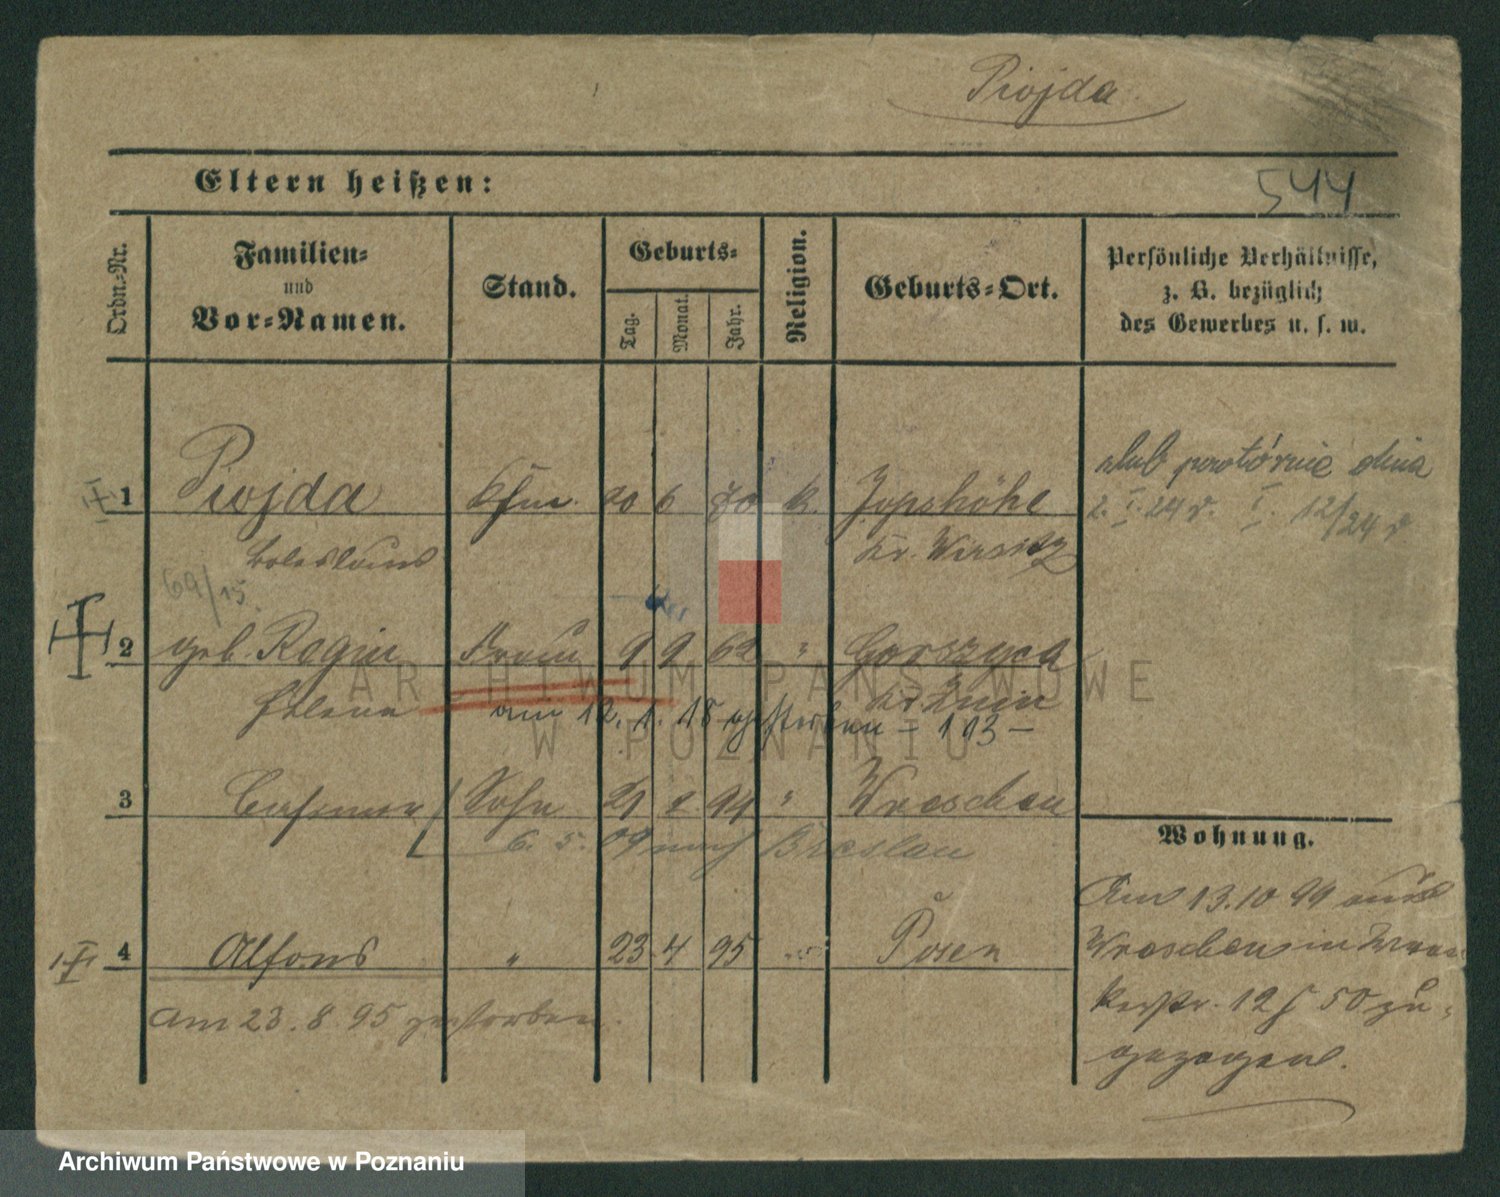 Piojda
Eltern heißen:
544
Ordn.-Nr.
Familien-
und
Vor-Namen.
Stand.
Geburts-
Tag.
Monat.
Jahr.
Religion.
Geburts-Ort.
Persönliche Verhältnisse,
z. B. bezüglich
des Gewerbes u. s. w.
1 Piojda Kfm. 6 k.
Boleslaus Kr. Wirsitz
ślub powtórnie dnia
2. I. 24 r. I. 12/24 r
69/15
2 geb. Rogin Frau 9 9 62 " Gorszyca
Helena Kr. Znin
am 12. 1. 15 gestorben – 193 –
3 Casimir Sohn 21 2 94 " Wreschen
6. 5. 09 nach Breslau
4 Alfons " 23 4 95 Posen
am 23. 8. 95 gestorben.
Wohnung.
Am 13.10 94 aus
Wreschen in
12 50 zu-
gezogen.
ARCHIWUM PAŃSTWOWE
W POZNANIU
Archiwum Państwowe w Poznaniu